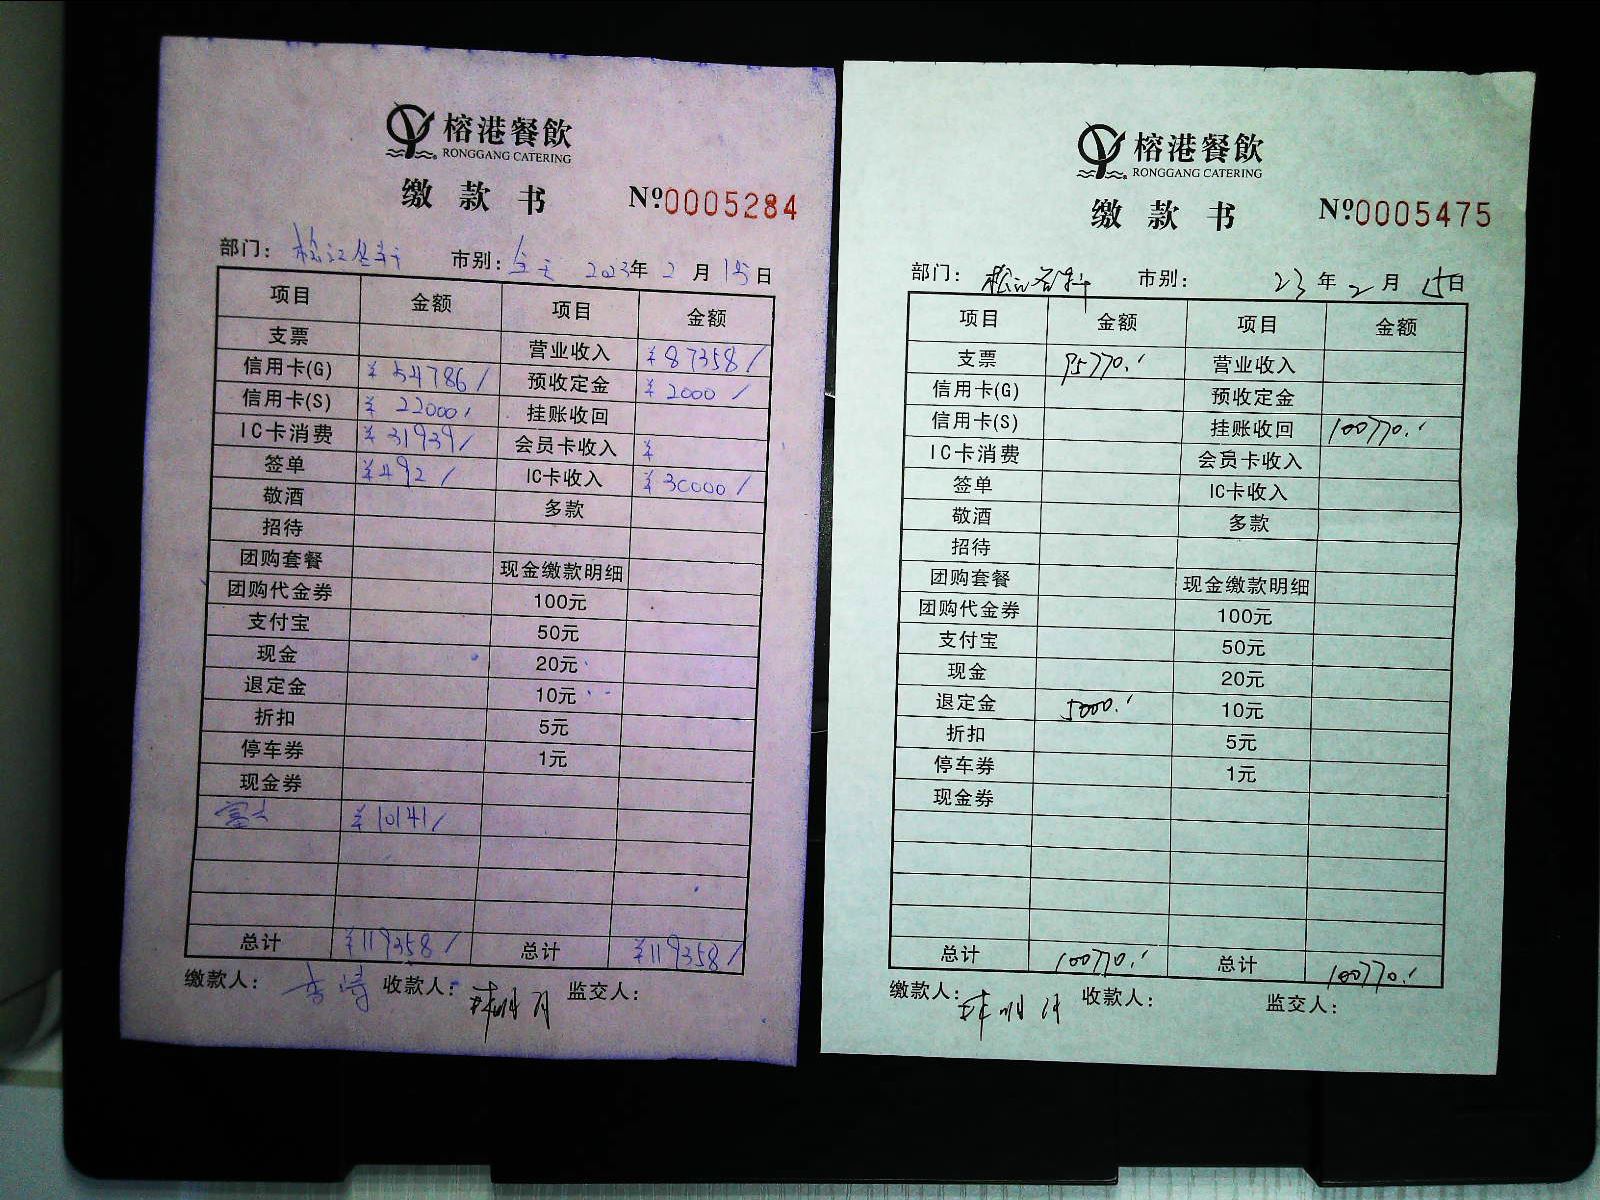 榕港餐飲
RONGGANG CATERING
缴款书 №0005284
部门： 市别： 2023年 2月 15日
项目 金额 项目 金额
支票 营业收入 ¥87358/
信用卡(G) ¥54786/ 预收定金 ¥2000/
信用卡(S) ¥22000/ 挂账收回
IC卡消费 ¥31939/ 会员卡收入 ¥
签单 ¥492/ IC卡收入 ¥30000/
敬酒 多款
招待
团购套餐 现金缴款明细
团购代金券 100元
支付宝 50元
现金 20元
退定金 10元
折扣 5元
停车券 1元
现金券
¥10141/
总计 ¥119358/ 总计 ¥119358/
缴款人： 收款人： 监交人：
榕港餐飲
RONGGANG CATERING
缴款书 №0005475
部门： 市别： 23年 2月 15日
项目 金额 项目 金额
支票 95770.' 营业收入
信用卡(G) 预收定金
信用卡(S) 挂账收回 100770.'
IC卡消费 会员卡收入
签单 IC卡收入
敬酒 多款
招待
团购套餐 现金缴款明细
团购代金券 100元
支付宝 50元
现金 20元
退定金 5000.' 10元
折扣 5元
停车券 1元
现金券
总计 100770.' 总计 100770.'
缴款人： 收款人： 监交人：